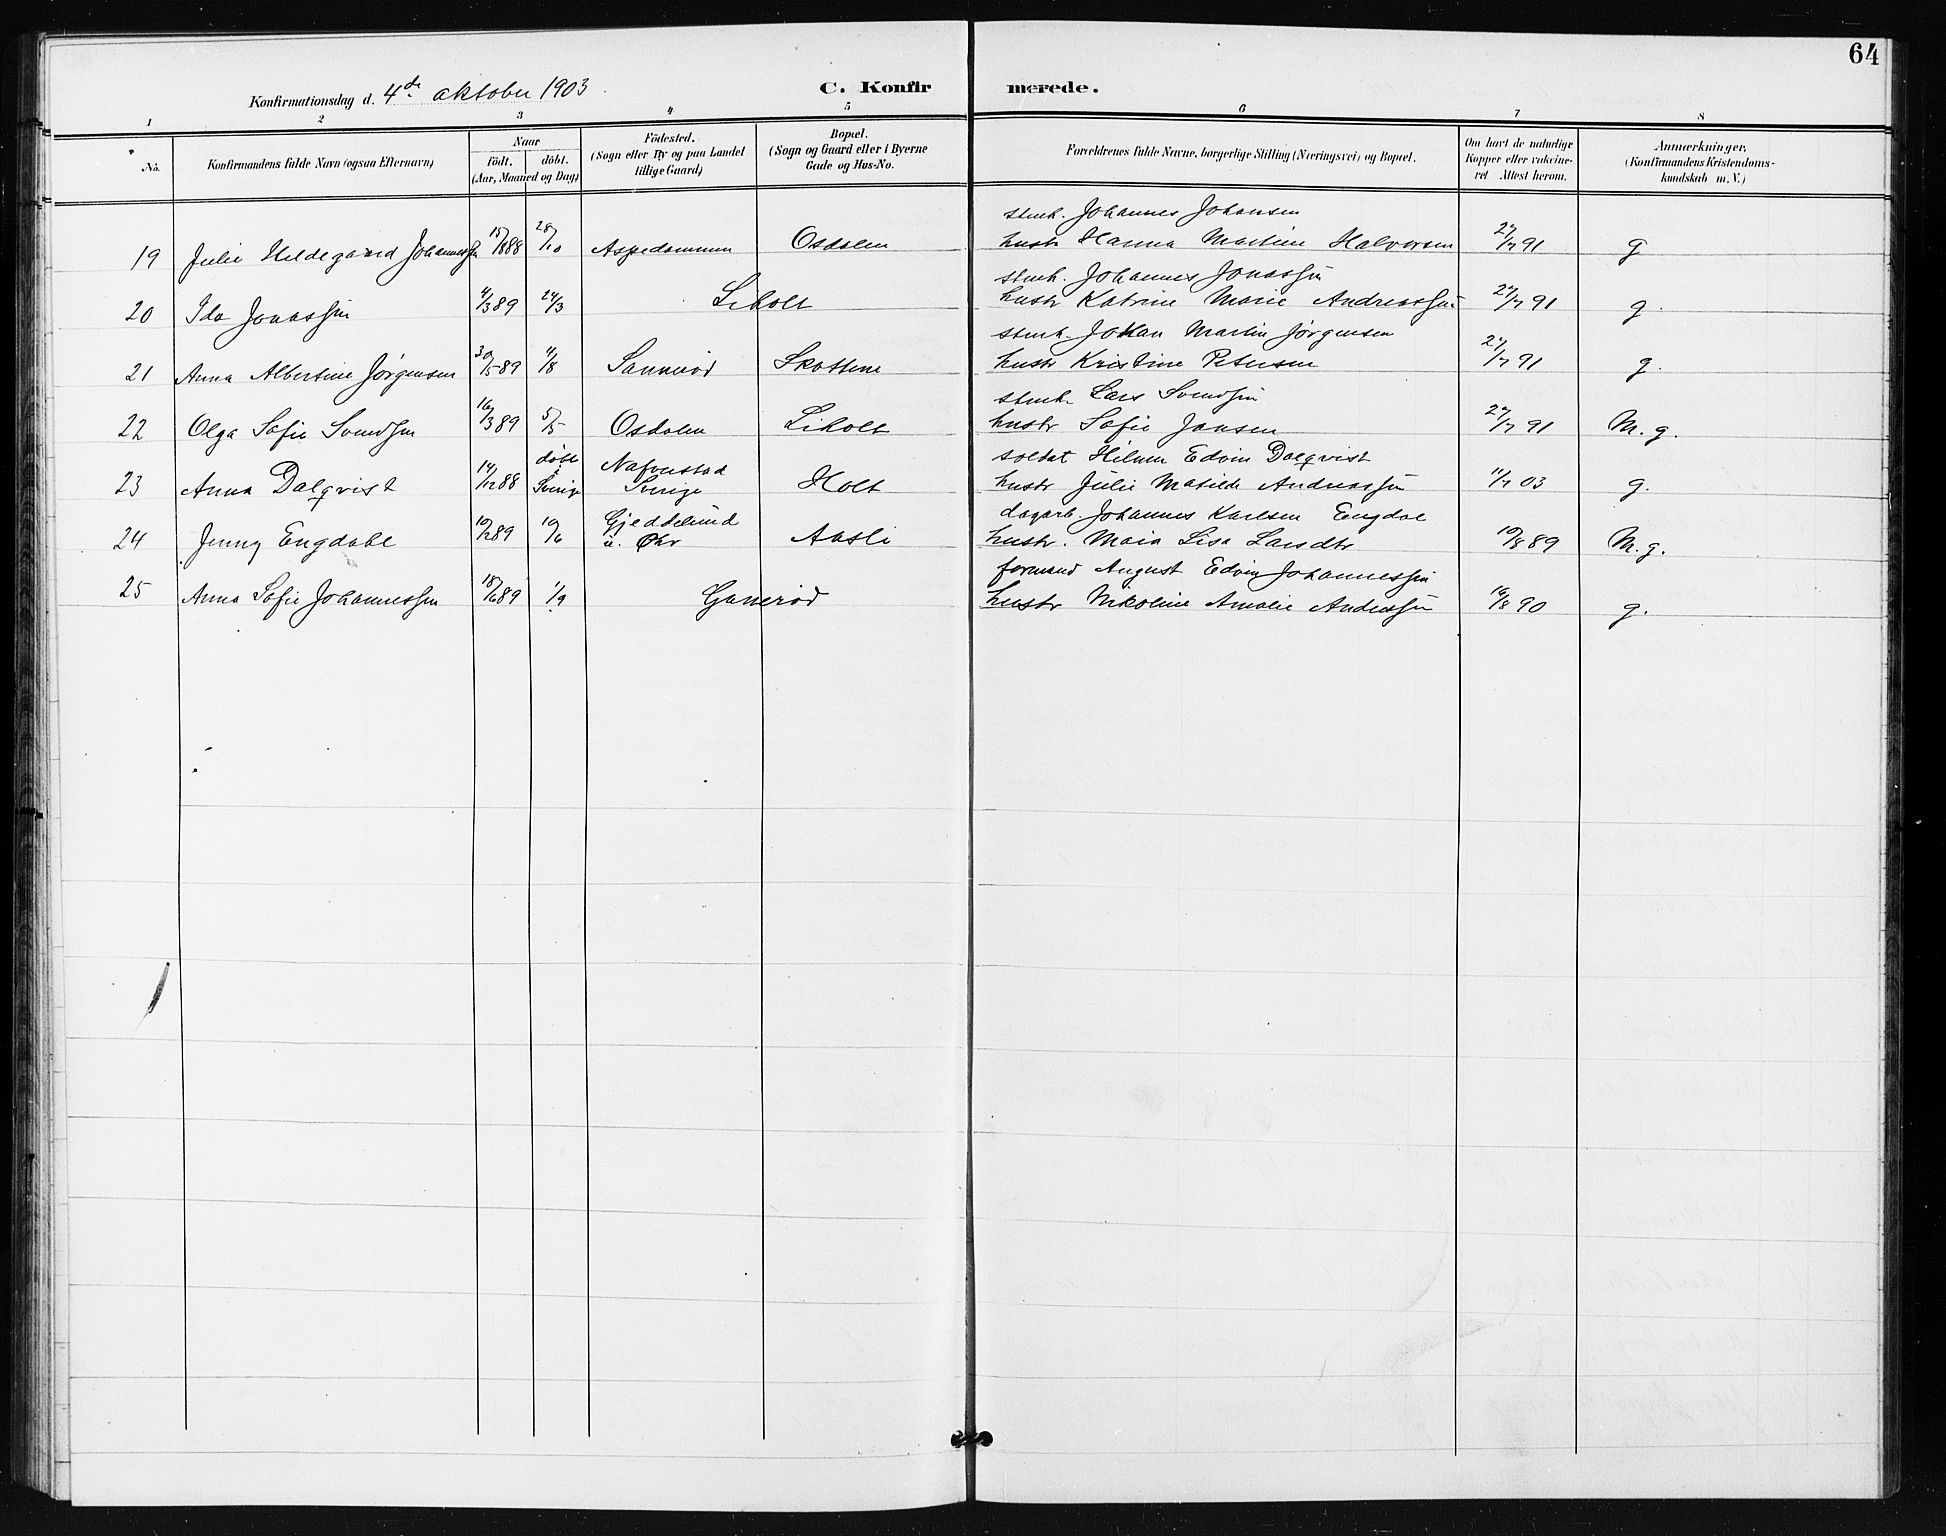 64
Konfirmationsdag d. 4de oktober 1903
C. Konfir merede.
1 2 3 4 5 6 7 8
No.
Konfirmandens fulde Navn (ogsaa Efternavn)
Naar
födt. döbt.
(Aar, Maaned og Dag)
Födested.
(Sogn eller By og paa Landet
tillige Gaard)
Bopæl.
(Sogn og Gaard eller i Byerne
Gade og Hus-No.
Forældrenes fulde Navne, borgerlige Stilling (Næringsvei) og Bopæl.
Om havt de naturlige
Kopper eller vakcine-
ret Attest herom.
Anmærkninger.
(Konfirmandens Kristendoms-
kundskab m. V.)
stenh. Johannes Johansen
19 Julie Hildegaard Johannessen 1888 28/10 Aspedammen Osdalen hustr Hanna Martine Halvorsen 27/7 91 g
stenh. Johannes Jonassen
20 Ida Jonassen 4/3 89 24/3 Liholt hustr Katrine Marie Andreassen 27/7 91 g.
stenh. Johan Martin Jørgensen
21 Anna Albertine Jørgensen 30/5 89 4/8 Sannerød Skottene hustr Kristine Petersen 27/7 91 g.
stenh. Lars Svendsen
22 Olga Sofie Svendsen 16/3 89 5/5 Osdalen Liholt hustr Sofie Jansen 27/7 91 M. g.
døbt i Nafverstad soldat Hilmer Edvin Dalqvist
23 Anna Dalqvist 14/12 88 Sverige Sverige Holt hustr Julie Matilde Andreassen 11/7 03 g.
Gjeddelund dagarb. Johannes Karlsen Engdal
24 Jenny Engdahl 10/2 89 10/6 u. Ør Aasli hustr. Maia Lisa Larsdtr 10/8 89 M. g.
formand August Edvin Johannessen
25 Anna Sofie Johannessen 18/6 89 1/9 Ganerød hustr Nikoline Amalie Andreassen 19/8 90 g.